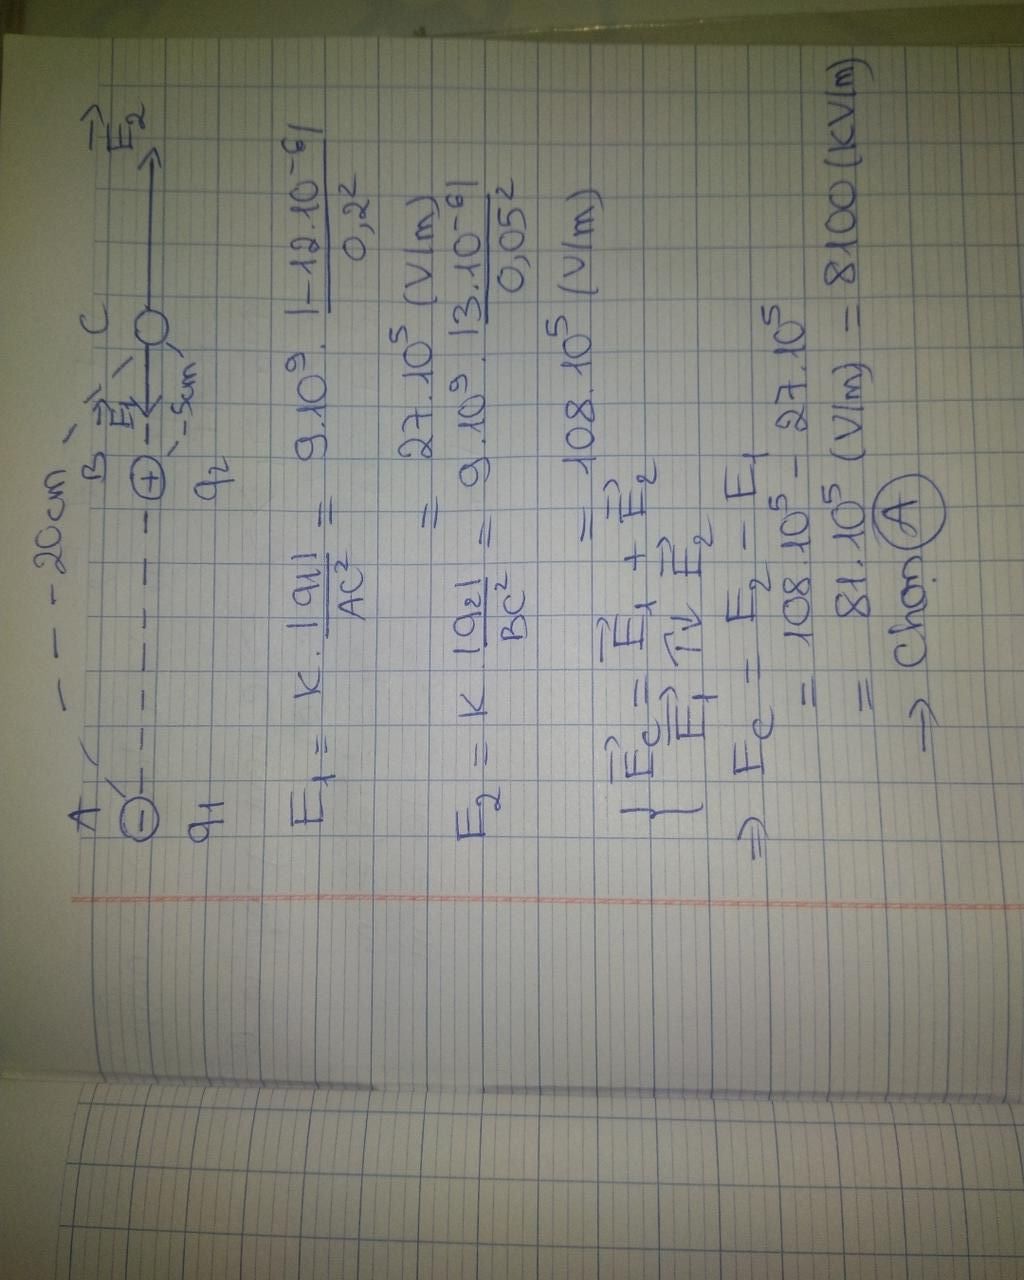 - - - 20cm -
A B C
E₁→ E₂→
⊖ - - - - - - ⊕
- 5cm
q1 q2
E₁ = K. |q1| / AC² = 9.10⁹. |-12.10⁻⁶| / 0,2²
= 27.10⁵ (V/m)
E₂ = K |q2| / BC² = 9.10⁹. |3.10⁻⁶| / 0,05²
= 108.10⁵ (V/m)
{ E_C→ = E₁→ + E₂→
E₁→ ↑↓ E₂→
⇒ E_C = E₂ - E₁
= 108.10⁵ - 27.10⁵
= 81.10⁵ (V/m) = 8100 (KV/m)
→ Chọn Ⓐ